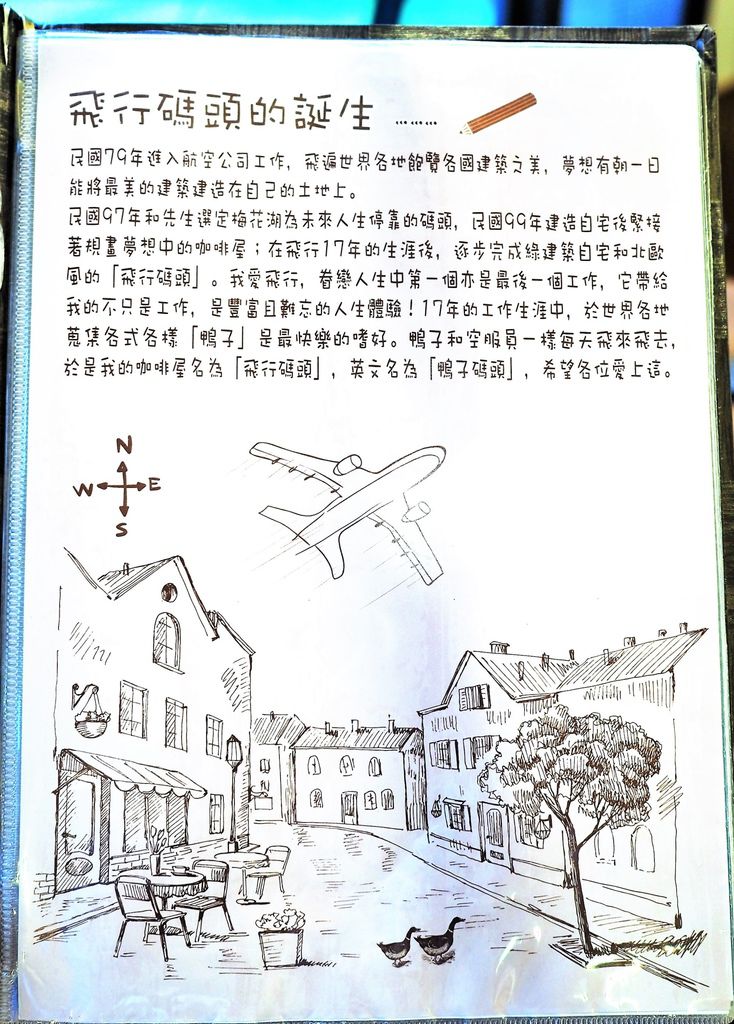 飛行碼頭的誕生 ………
民國79年進入航空公司工作，飛遍世界各地飽覽各國建築之美，夢想有朝一日
能將最美的建築建造在自己的土地上。
民國97年和先生選定梅花湖為未來人生停靠的碼頭，民國99年建造自宅後緊接
著規畫夢想中的咖啡屋；在飛行17年的生涯後，逐步完成綠建築自宅和北歐
風的「飛行碼頭」。我愛飛行，眷戀人生中第一個亦是最後一個工作，它帶給
我的不只是工作，是豐富且難忘的人生體驗！17年的工作生涯中，於世界各地
蒐集各式各樣「鴨子」是最快樂的嗜好。鴨子和空服員一樣每天飛來飛去，
於是我的咖啡屋名為「飛行碼頭」，英文名為「鴨子碼頭」，希望各位愛上這。
N
W E
S